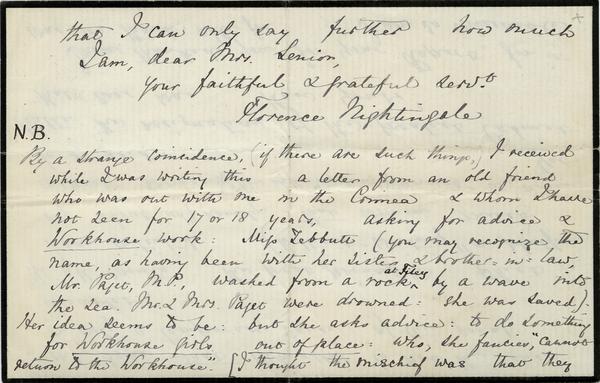 that I can only say further how much
I am, dear Mrs. Senior,
your faithful & grateful servt.
Florence Nightingale
N.B.
By a strange coincidence, (if there are such things,) I received
while I was writing this a letter from an old friend
who was out with me in the Crimea & whom I have
not seen for 17 or 18 years, asking for advice &
Workhouse work: Miss Tebbutt (you may recognize the
name, as having been with her sister & brother-in-law,
at Filey
Mr. Paget, M.P., washed from a rock by a wave into
the sea. Mr. & Mrs. Paget were drowned: she was saved).
Her idea seems to be: but she asks advice: to do something
for Workhouse girls out of place: who, she fancies, "cannot
return to the Workhouse". [I thought the mischief was that they